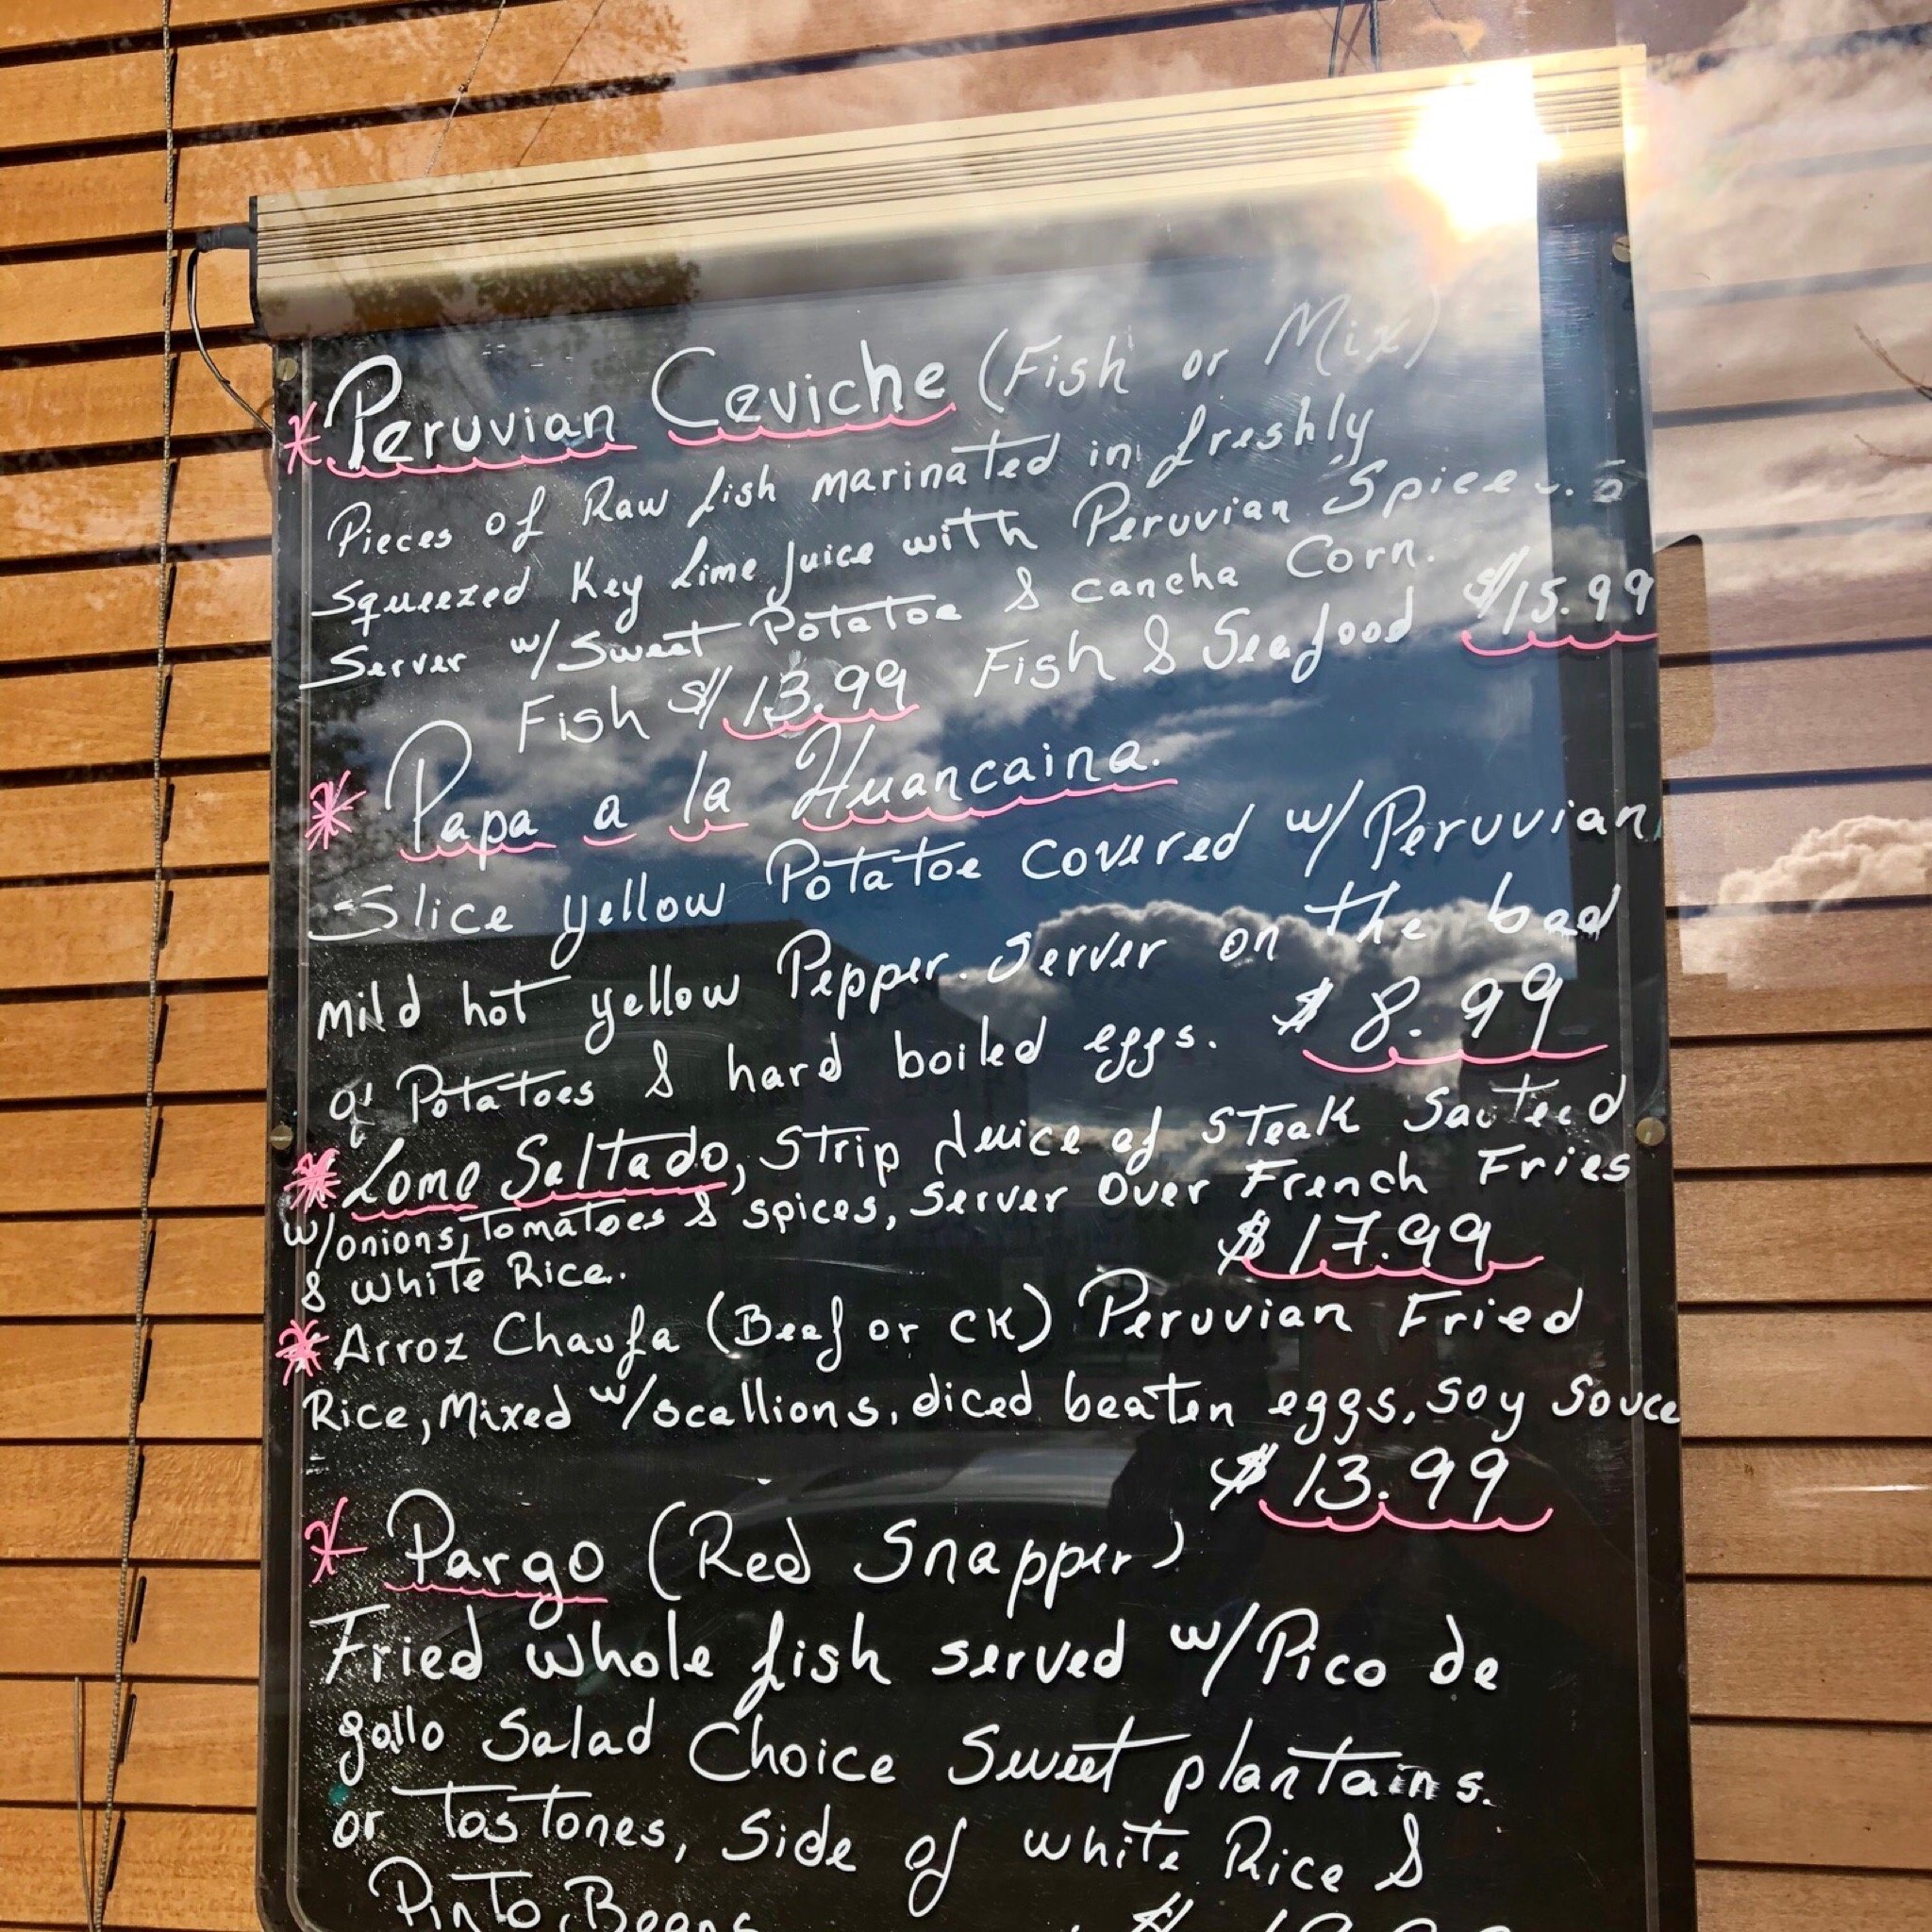 * Peruvian Ceviche (Fish or Mix)
Pieces of Raw fish marinated in freshly
Squeezed Key Lime Juice with Peruvian
Server w/Sweet Potatoe & cancha Corn.
Fish $13.99 Fish & Seafood $15.99
* Papa a la Huancaina.
Slice yellow Potatoe covered w/Peruvian
mild hot yellow Pepper. Server on the bad
of Potatoes & hard boiled eggs. $8.99
* Lomo Saltado, Strip of Steak Sauteed
w/onions, Tomatoes & spices, Server Over French Fries
& White Rice.. $17.99
* Arroz Chaufa (Beef or CK) Peruvian Fried
Rice, Mixed w/scallions, diced beaten eggs, Soy Souce
$13.99
* Pargo (Red Snapper)
Fried whole fish served w/Pico de
gallo Salad Choice Sweet plantains.
or Tostones, Side of white Rice &
Pinto Beans